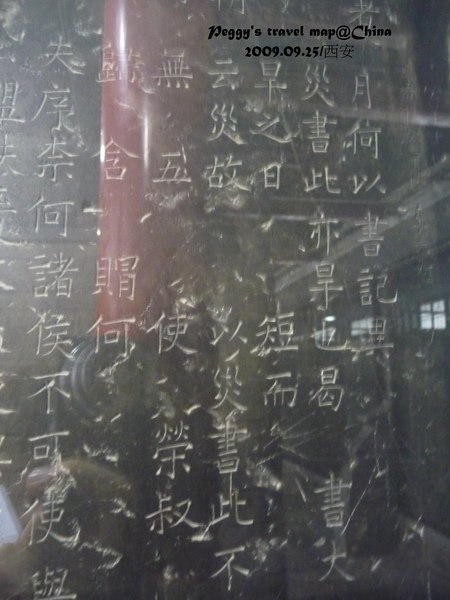 Peggy's travel map@China
2009.09.25/西安
月何以書記異
災書此亦旱也曷 書大
旱之日短而
云災故以災書此不
無 五 使榮叔
歸含 賵何
夫序柰何諸侯不可使與
盟